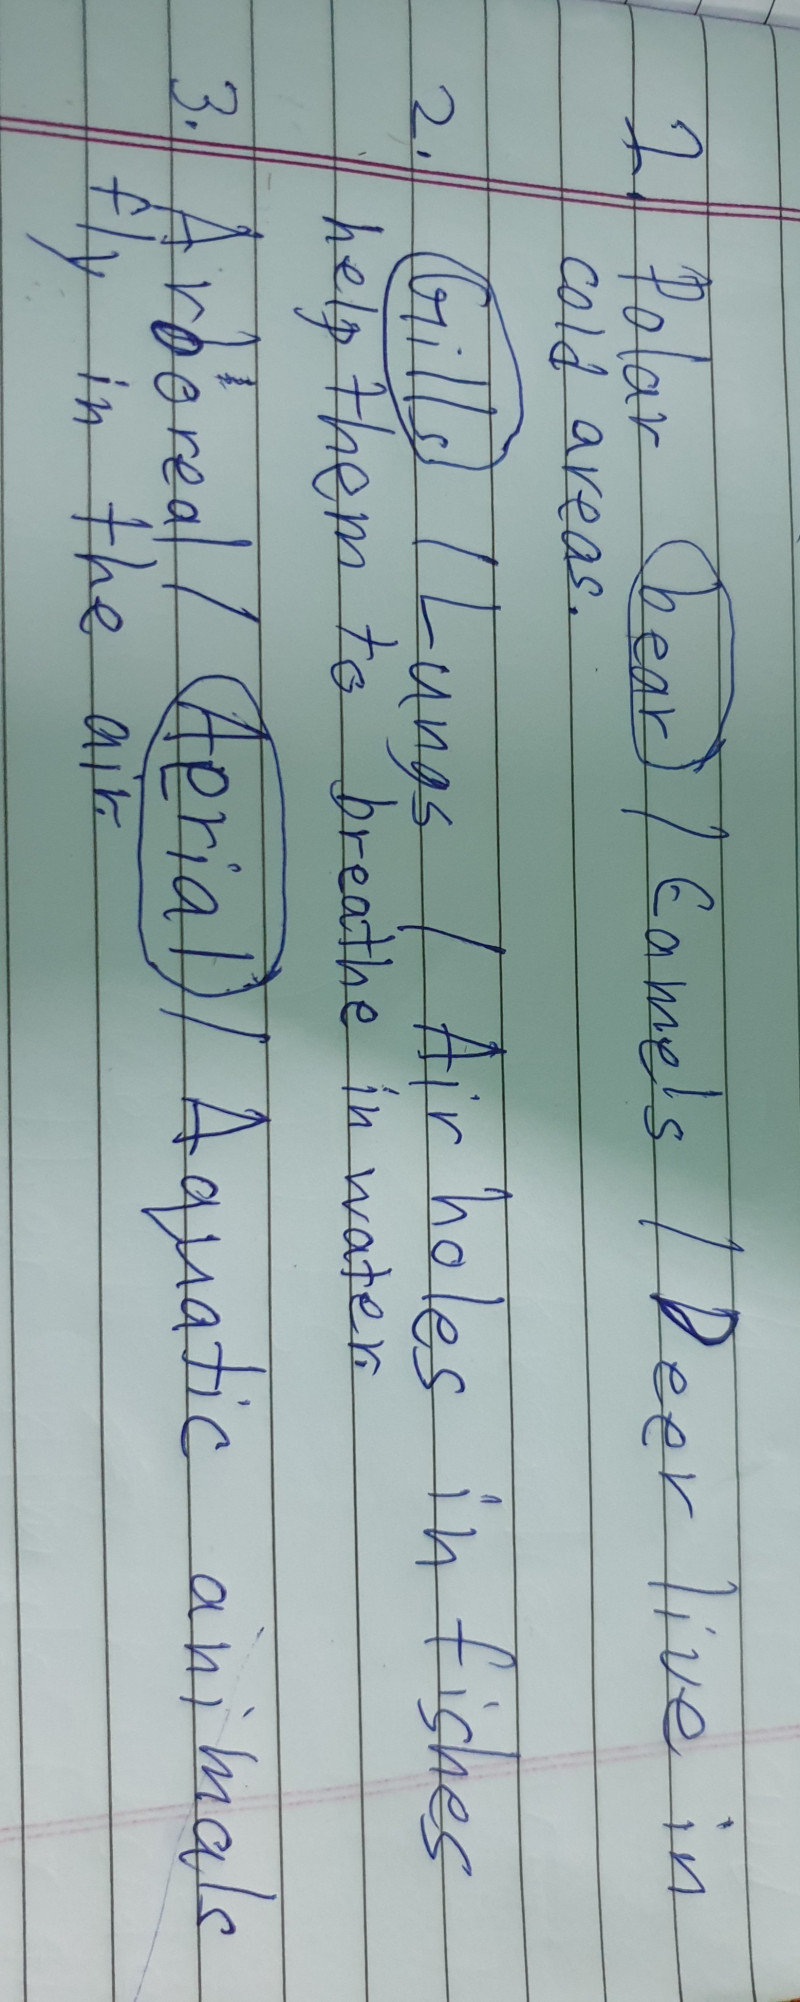 1. Polar bear / Camels / Deer live in
cold areas.
2. Gills / Lungs / Air holes in fishes
help them to breathe in water.
3. Arboreal / Aerial / Aquatic animals
fly in the air.